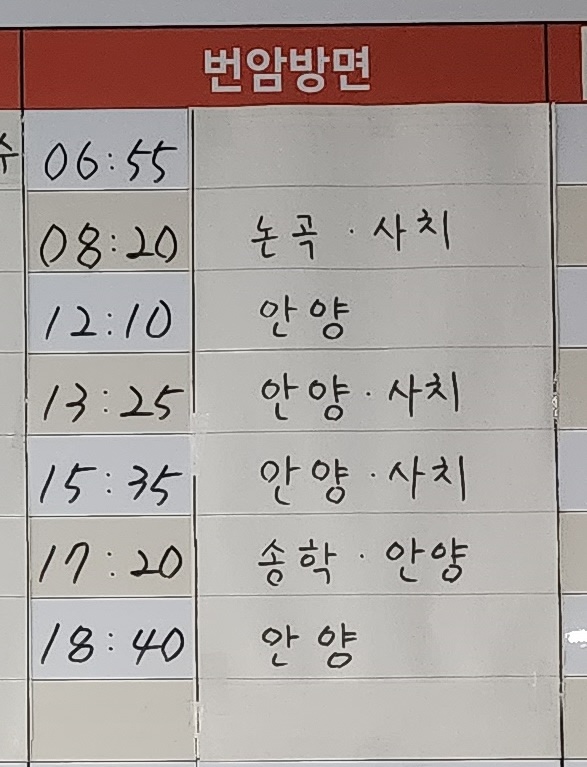 번암방면
06:55
08:20 논곡·사치
12:10 안양
13:25 안양·사치
15:35 안양·사치
17:20 송학·안양
18:40 안양